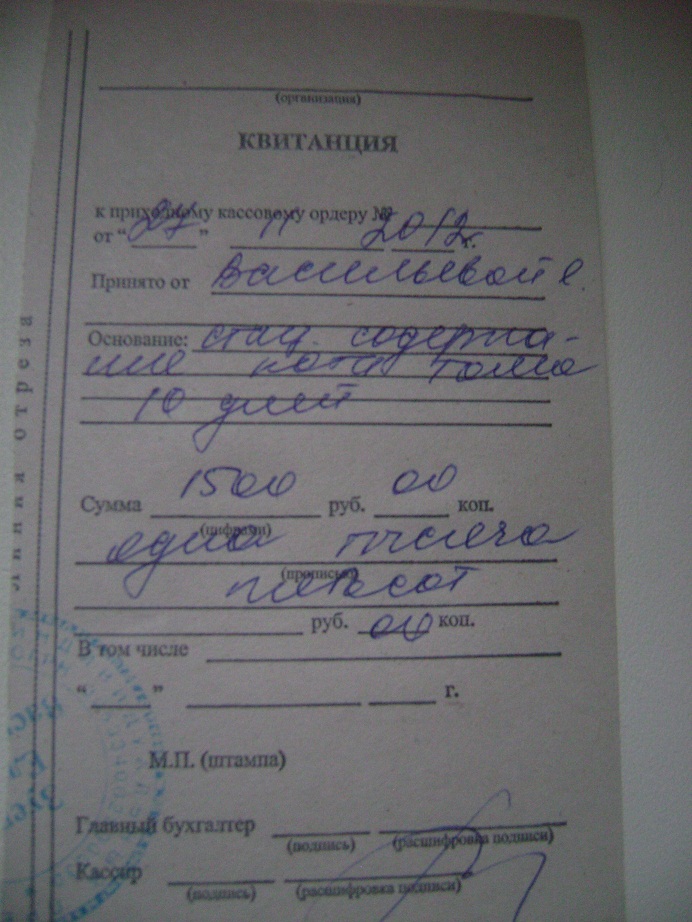 (организация)
КВИТАНЦИЯ
к приходному кассовому ордеру №
от “ 27 ” 11 2012 г.
Принято от Васильевой Е.
Основание: стац. содержа-
ние кота
10 дней
Сумма 1500 руб. 00 коп.
(цифрами)
одна тысяча
(прописью)
пятьсот
руб. 00 коп.
В том числе
“ ” г.
М.П. (штампа)
Главный бухгалтер
(подпись) (расшифровка подписи)
Кассир
(подпись) (расшифровка подписи)
линия отреза